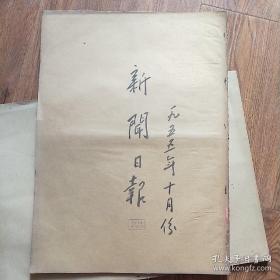 新聞日報
一九五五年十月份